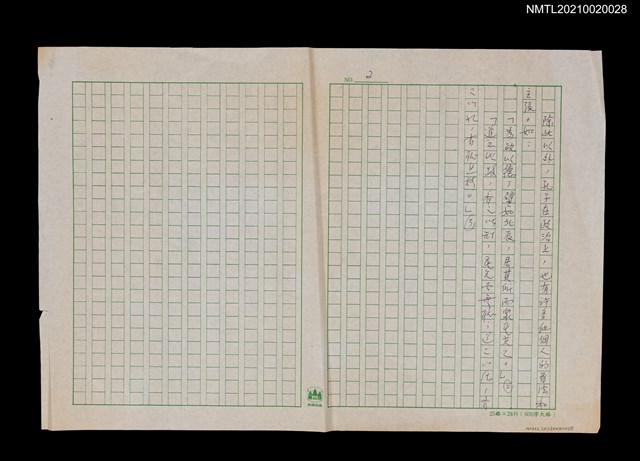 NMTL20210020028
NO. 2
除此以外，孔子在政治上，也有許多他個人的看法和
主張。如：
「為政以德，譬如北辰，居其所而眾星共之。」
「道之以政，齊之以刑，民免而無恥；道之以
之以禮，有恥且格。」
25格×24行